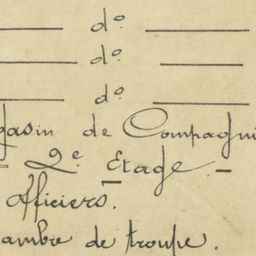 — dº —
— dº —
— dº —
gasin de Compagni
– 2e Etage. –
officiers.
ambre de troupe.